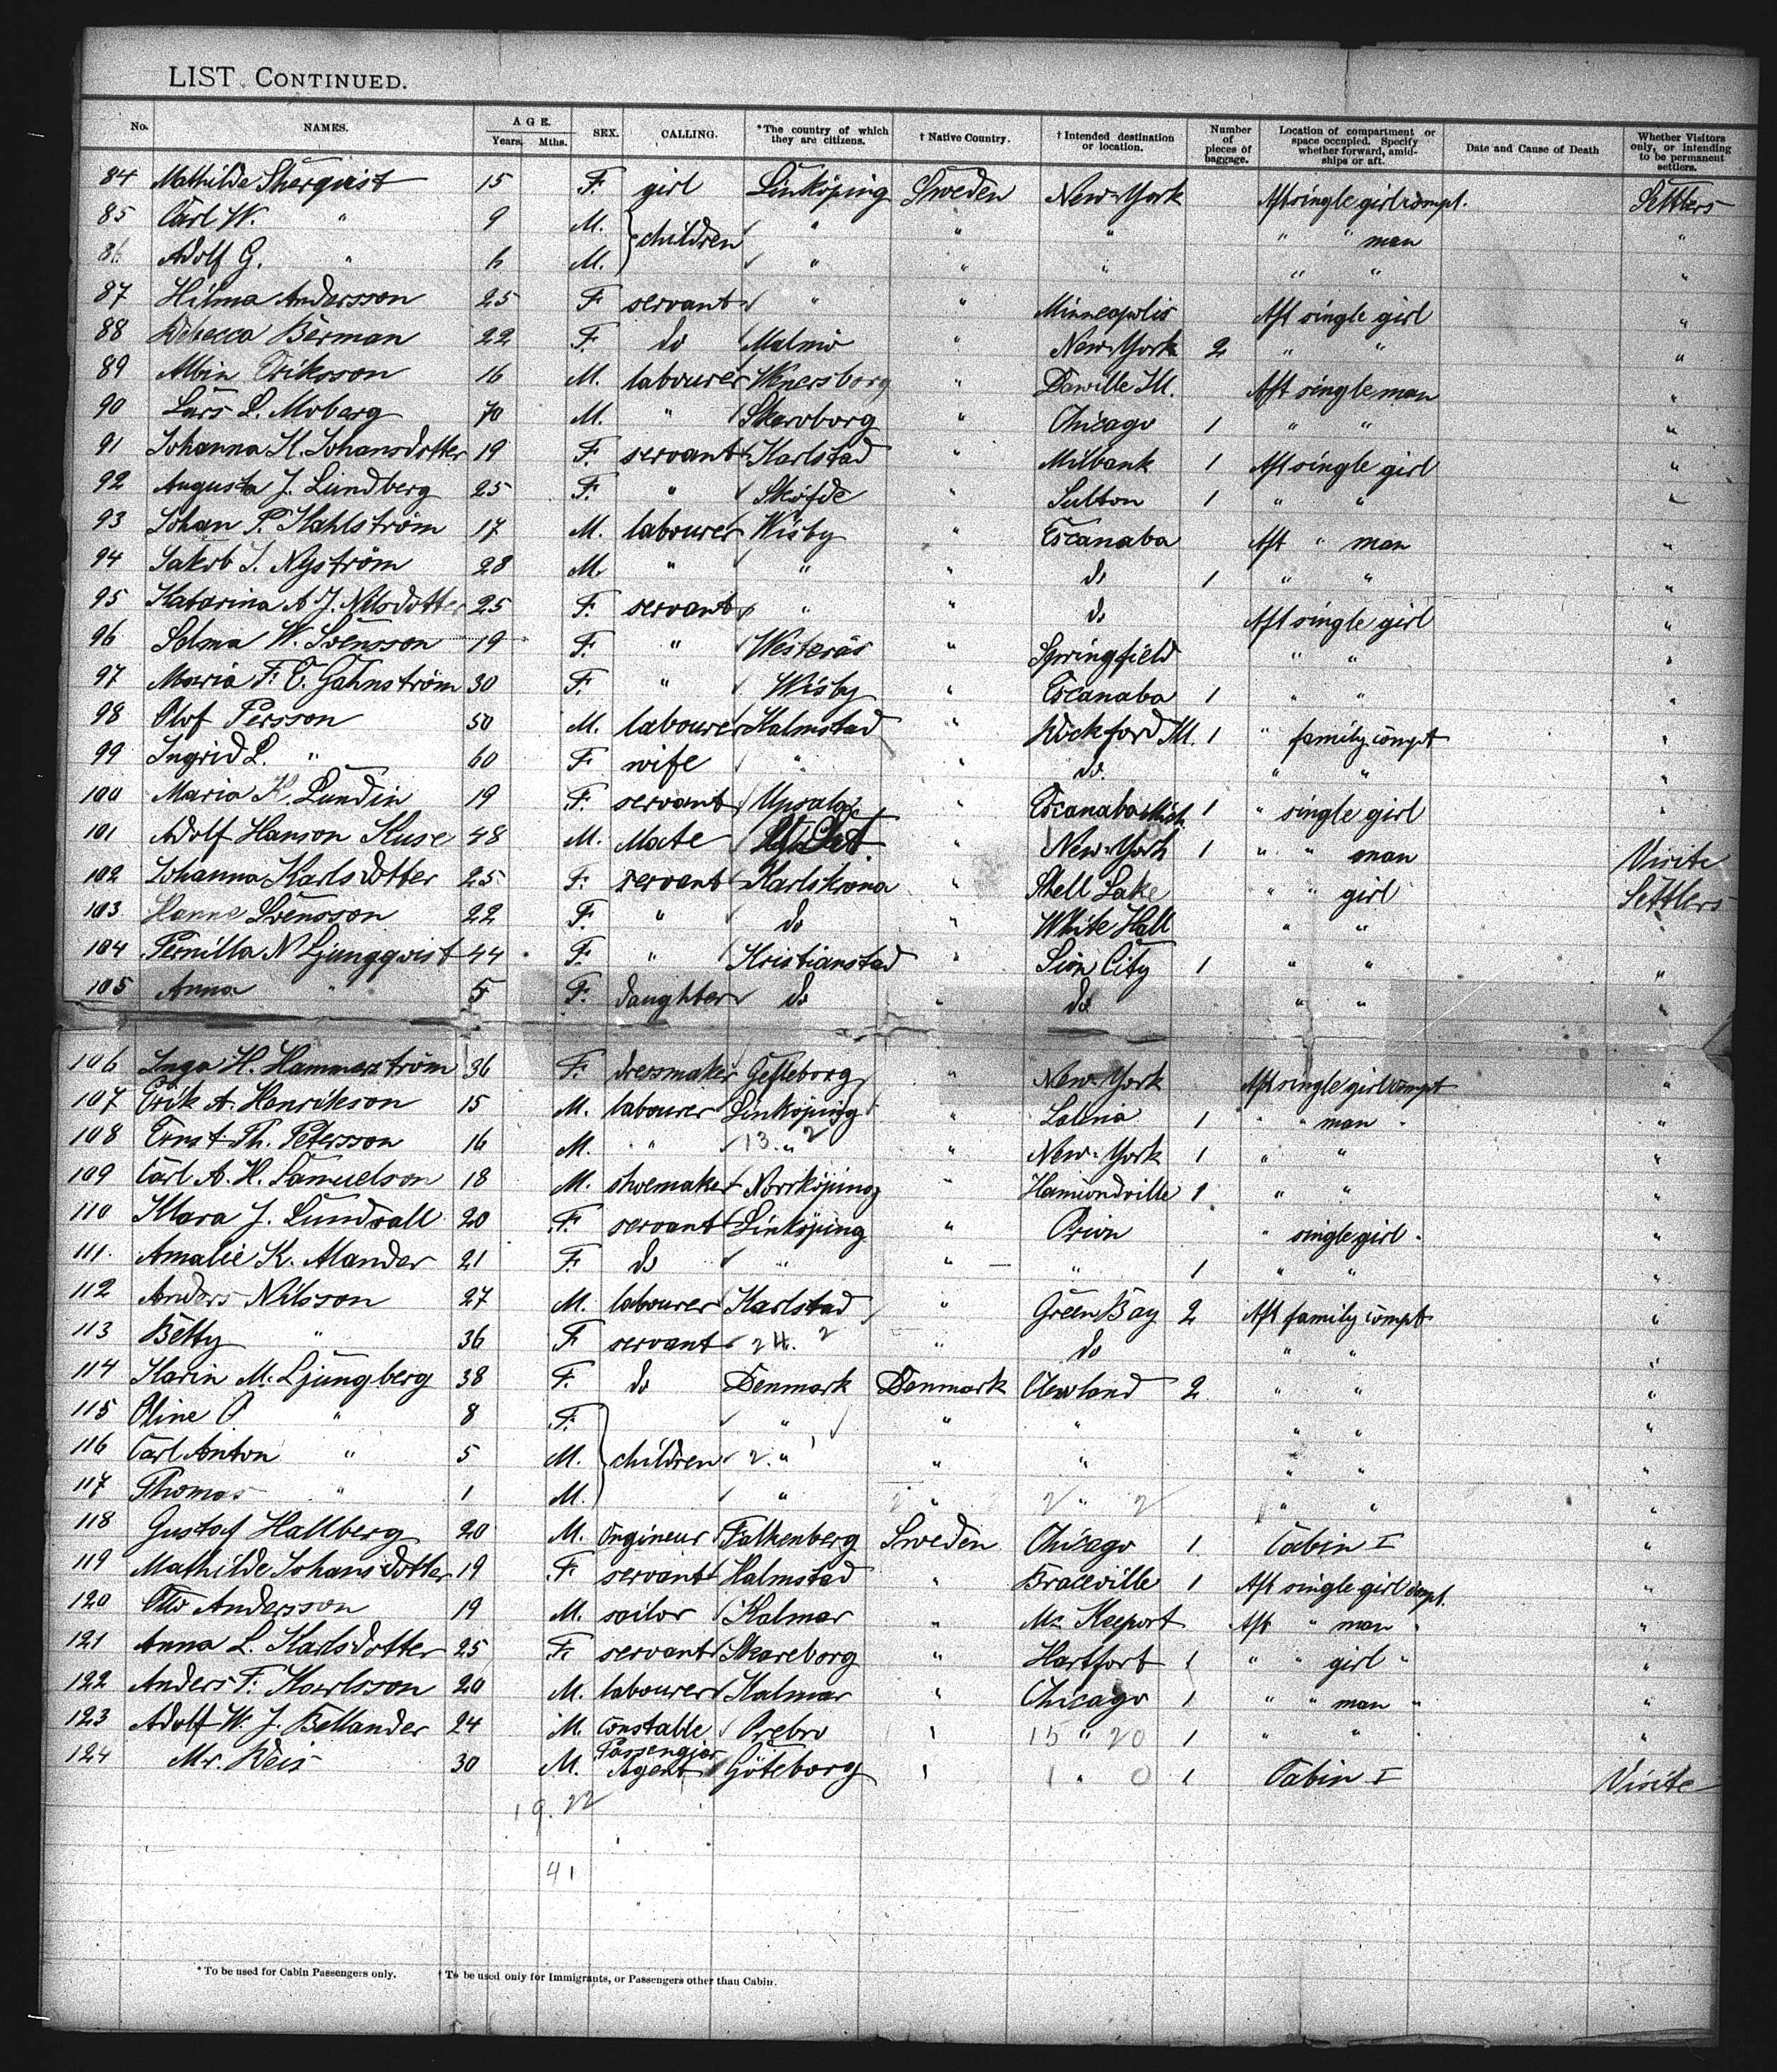 LIST CONTINUED.
No. NAMES. AGE. Years. Mths. SEX. CALLING. *The country of which they are citizens. † Native Country. † Intended destination or location. Number of pieces of baggage. Location of compartment or space occupied. Specify whether forward, amidships or aft. Date and Cause of Death Whether Visitors only, or intending to be permanent settlers.
84 Mathilde 15 F. girl Linköping Sweden New-York Aft single girl compt. Settlers
85 Carl W. " 9 M. children " " " " " man "
86 Adolf G. " 6 M. " " " " " "
87 Hilma Andersson 25 F servant " " Minneapolis Aft single girl "
88 Rebecca Berman 22 F. do Malmö " New-York 2 " " "
89 Albin Eriksson 16 M. labourer Wenersborg " Danville Ill. Aft single man "
90 Lars L. Moberg 70 M. " Skaroborg " Chicago 1 " " "
91 Johanna K. Johansdotter 19 F. servant Karlstad " Milbank 1 Aft single girl "
92 Augusta J. Lundberg 25 F. " Sköfde " Sulton 1 " " "
93 Johan P. Kahlström 17 M. labourer Wisby " Escanaba Aft " man "
94 Jakob J. Nyström 28 M. " " " do 1 " " "
95 Katarina A. J. Nilsdotter 25 F. servant " " do Aft single girl "
96 Selma W. Svensson 19 F. " Westerås " Springfield " " "
97 Maria F. C. Gahnström 30 F. " Wisby " Escanaba 1 " " "
98 Olof Persson 50 M. labourer Halmstad " Rockford Ill. 1 " family compt "
99 Ingrid L. " 60 F wife " " do. " " "
100 Maria K. Lundin 19 F. servant Upsala " Escanaba Mich. 1 " single girl "
101 Adolf Hanson Kuse 48 M. Mate " New-York 1 " " man Visite
102 Johanna Karlsdotter 25 F. servant Karlskrona " Shell Lake " " girl Settlers
103 Hanna Svensson 22 F. " do " White Hall " "
104 Pernilla N Ljungqvist 44 F. " Kristianstad " Sion City 1 " " "
105 Anna " 5 F. daughter do " do " " "
106 Inga H. Hammarström 36 F. dressmaker Gefleborg " New-York Aft single girl compt "
107 Erik A. Henrikson 15 M. labourer Linköping " Salina 1 " " man "
108 Ernst Th. Petersson 16 M. " 13 " 2 " New-York 1 " " "
109 Carl A. H. Samuelson 18 M. shoemaker Norrköping " Hamondville 1 " " "
110 Klara J. Lundvall 20 F. servant Linköping " Orion " single girl "
111. Amalie K. Alander 21 F. do " " " 1 " " "
112 Anders Nilsson 27 M. labourer Karlstad " Green Bay 2 Aft family compt "
113 Betty " 36 F servant 24. 2 " do " " "
114 Karin M. Ljungberg 38 F. do Denmark Denmark Clevland 2 " " "
115 Oline O " 8 F. " " " " " "
116 Carl Anton " 5 M. children 2 " 1 " " " " "
117 Thomas " 1 M. " " 2 " 2 " " "
118 Gustaf Hallberg 20 M. Engineur Falkenberg Sweden Chicago 1 Cabin I "
119 Mathilde Johansdotter 19 F servant Halmstad " Braceville 1 Aft single girl compt. "
120 Otto Andersson 19 M. sailor Kalmar " Mc Keeport Aft " man "
121 Anna L. Karlsdotter 25 F. servant Skareborg " Hartfort 1 " " girl " "
122 Anders F. Karlsson 20 M. labourer Kalmar " Chicago 1 " " man " "
123 Adolf W. J. Bellander 24 M. Constable Örebro " 15 " 20 1 " " "
124 Mr. Reis 30 M. Passengjar Agent Göteborg " 1 " 0 1 Cabin I Visite
19. 22
41
* To be used for Cabin Passengers only. † To be used only for Immigrants, or Passengers other than Cabin.